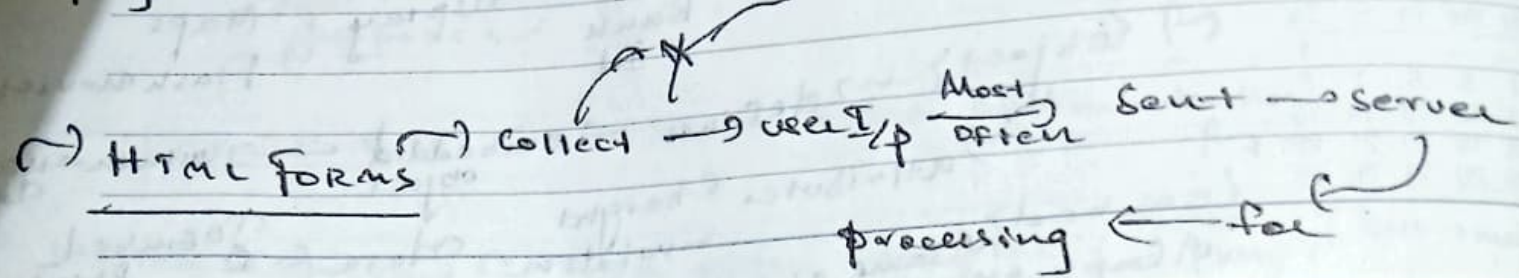 HTML FORMS → Collect → user I/p Most Often → Sent → server
processing ← for